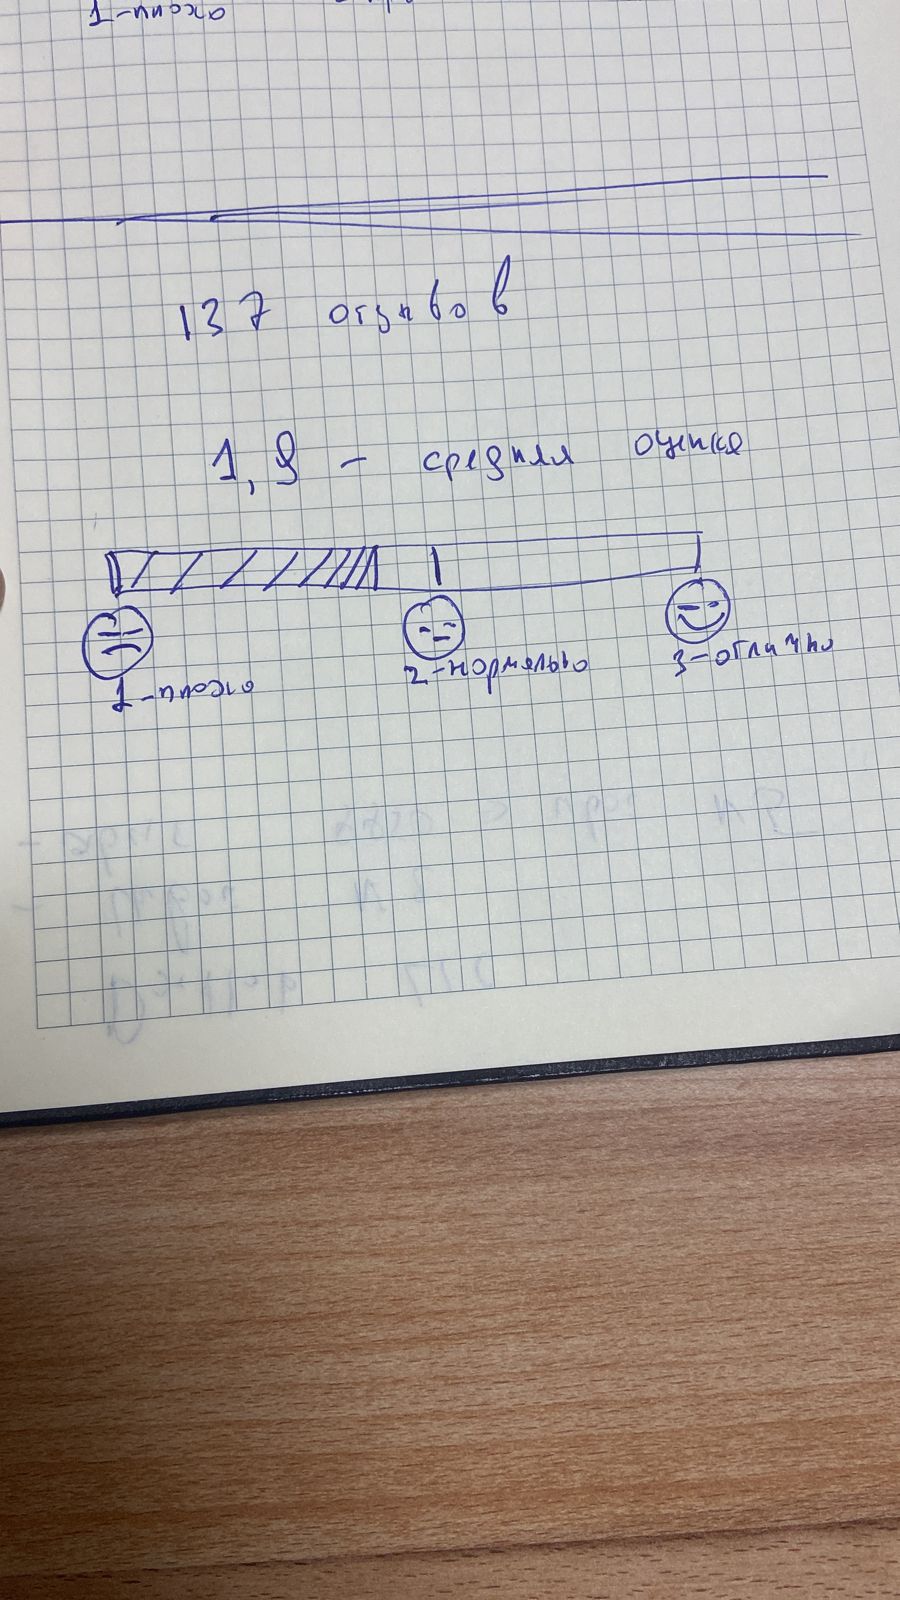 137 отзывов
1,9 - средняя оценка
1-плохо
2-нормально
3-отлично